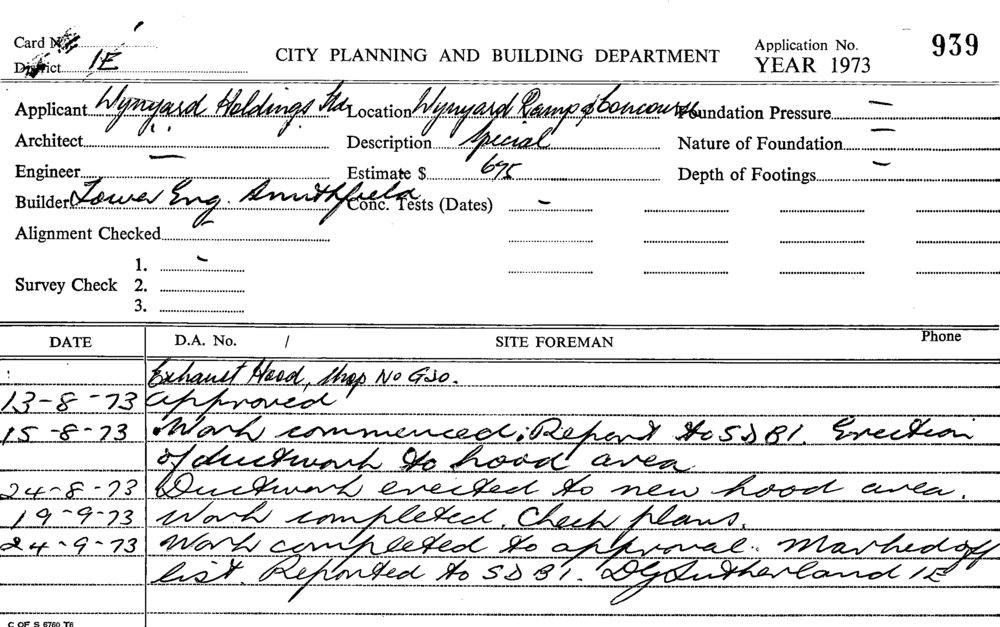 Card No.
District 1E
CITY PLANNING AND BUILDING DEPARTMENT
Application No. 939
YEAR 1973
Applicant Wynyard Holdings Ltd. Location Wynyard Ramp & Concourse Foundation Pressure —
Architect Description Special Nature of Foundation —
Engineer — Estimate $ 675 Depth of Footings —
Builder Tower Eng. Smithfield Conc. Tests (Dates) -
Alignment Checked
1. -
Survey Check 2.
3.
DATE D.A. No. / SITE FOREMAN Phone
Exhaust Hood, Shop No
13-8-73 Approved
15-8-73 Work commenced. Report to SDBI. Erection
of ductwork to hood area
24-8-73 Ductwork erected to new hood area.
19-9-73 Work completed. Check plans.
24-9-73 Work completed to approval. Marked off
list. Reported to SDBI. DG Sutherland 1E
C OF S 6760 T6